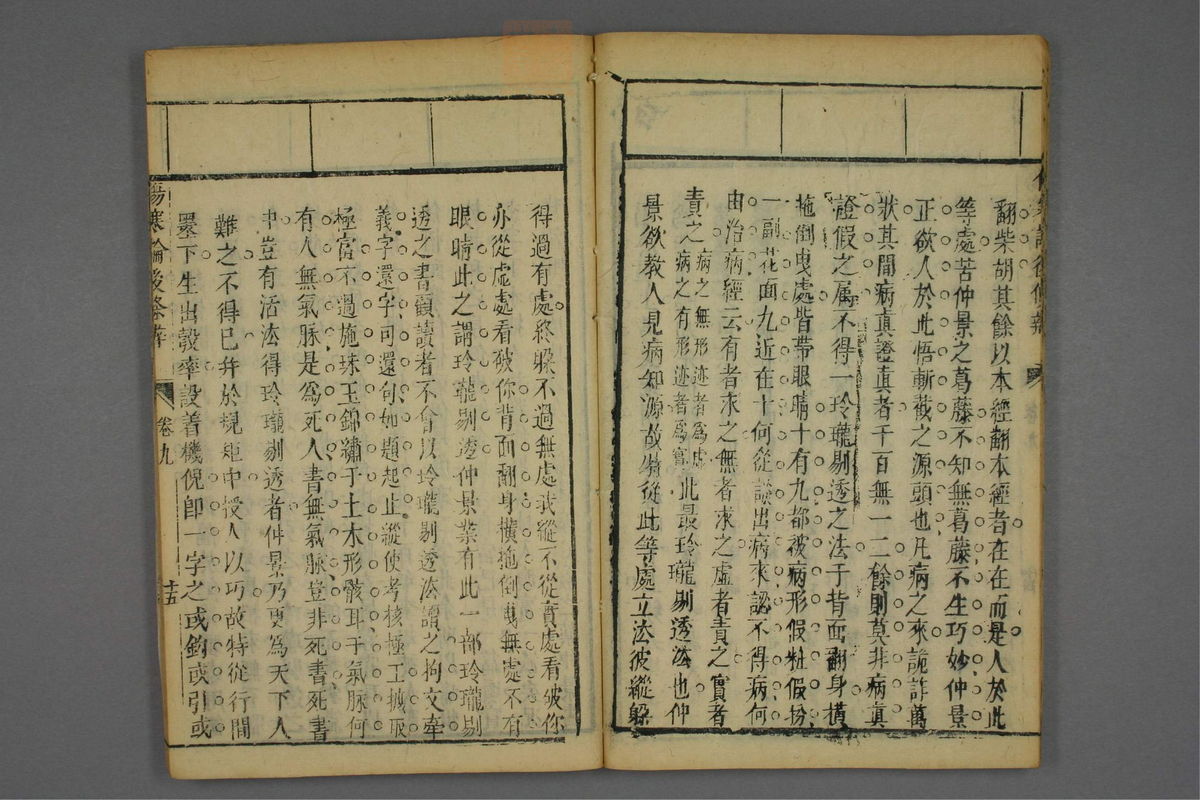 翻柴胡其餘以本經翻本經者在在而是人於此
等處苦仲景之葛藤不知無葛藤不生巧妙仲景
正欲人於此悟斬截之源頭也凡病之來詭詐萬
狀其間病真證真者千百無一二餘則莫非病真
證假之屬不得一玲瓏剔透之法于背面翻身橫
拖倒曳處皆帶眼睛十有九都被病形假粧假扮
一副花面九近在十何從談出病來認不得病何
由治病經云有者求之無者求之虛者責之實者
責之病之無形迹者為虛病之有形迹者為實此最玲瓏剔透法也仲
景欲教人見病知源故特從此等處立法彼縱躲
得過有處終躲不過無處我縱不從實處看破你
亦從虛處看破你背面翻身橫拖倒曳無處不有
眼睛此之謂玲瓏剔透仲景業有此一部玲瓏剔
透之書顧讀者不會以玲瓏剔透法讀之拘文牽
義字還字句還句如題起止縱使考核極工摭取
極富不過施珠玉錦繡于土木形骸耳于氣脉何
有人無氣脉是為死人書無氣脉豈非死書死書
中豈有活法得玲瓏剔透者仲景乃更為天下人
難之不得已并於規矩中授人以巧故特從行間
墨下生出彀率設着機倪即一字之或鈎或引或
傷寒論後條辨
卷九
十五